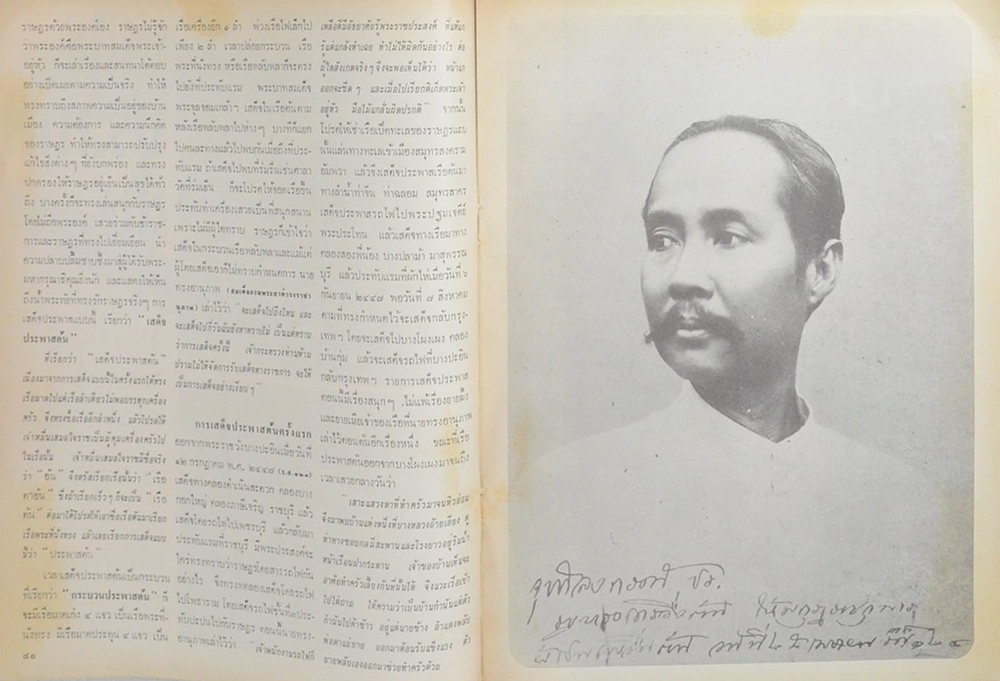 ราษฎรด้วยพระองค์เอง ราษฎรไม่รู้จัก
ว่าพระองค์คือพระบาทสมเด็จพระเจ้า-
อยู่หัว ก็จะเล่าเรื่องและสนทนาโต้ตอบ
อย่างเปิดเผยตามความเป็นจริง ทำให้
ทรงทราบถึงสภาพความเป็นอยู่ของบ้าน
เมือง ความต้องการ และความนึกคิด
ของราษฎร ทำให้ทรงสามารถปรับปรุง
แก้ไขสิ่งต่างๆ ที่ยังบกพร่อง และทรง
ปกครองให้ราษฎรอยู่เย็นเป็นสุขได้ทั่ว
ถึง บางครั้งก็จะทรงเล่นสนุกกับราษฎร
โดยไม่ถือพระองค์ เสวยร่วมกับข้าราช-
การและราษฎรที่ทรงไปเยี่ยมเยือน นำ
ความปลาบปลื้มซาบซึ้งมาสู่ผู้ได้รับพระ-
มหากรุณาธิคุณยิ่งนัก และแสดงให้เห็น
ถึงน้ำพระทัยที่ทรงรักราษฎรจริงๆ การ
เสด็จประพาสแบบนี้ เรียกว่า "เสด็จ
ประพาสต้น"
ที่เรียกว่า "เสด็จประพาสต้น"
เนื่องมาจากการเสด็จแบบนี้ในครั้งแรกได้ทรง
เรือมาดไปแต่เรือลำเดียวไม่พอบรรทุกเครื่อง
ครัว จึงทรงซื้อเรืออีกลำหนึ่ง แล้วโปรดให้
เจ้าหมื่นเสมอใจราชเป็นผู้คุมเครื่องครัวไป
ในเรือนั้น เจ้าหมื่นเสมอใจราชมีชื่อจริง
ว่า "อ้น" จึงตรัสเรียกเรือนั้นว่า "เรือ
ตาอ้น" ซึ่งถ้าเรียกเร็วๆ ก็จะเป็น "เรือ
ต้น" ต่อมาได้โปรดให้เอาชื่อเรือต้นมาเรียก
เรือพระที่นั่งทรง แล้วเลยเรียกการเสด็จแบบ
นี้ว่า "ประพาสต้น"
เวลาเสด็จประพาสต้นเป็นกระบวน
ที่เรียกว่า "กระบวนประพาสต้น" ก็
จะมีเรือมาดเก๋ง ๔ แจว เป็นเรือพระที่-
นั่งทรง มีเรือมาดประทุน ๔ แจว เป็น
๔๐
เรือเครื่องอีก ๑ ลำ พ่วงเรือไฟเล็กไป
เพียง ๒ ลำ เวลาปล่อยกระบวน เรือ
พระที่นั่งทรง หรือเรือพลับพลาก็จะตรง
ไปยังที่ประทับแรม พระบาทสมเด็จ
พระจุลจอมเกล้าฯ เสด็จในเรือต้นตาม
หลังเรือพลับพลาไปห่างๆ บางทีก็แยก
ไปคนละทางแล้วไปพบกันเมื่อถึงที่ประ-
ทับแรม ถ้าเสด็จไปพบที่ร่มรื่นเช่นศาลา
วัดที่ร่มเย็น ก็จะโปรดให้จอดเรือขึ้น
ประทับทำเครื่องเสวยเป็นที่สนุกสนาน
เพราะไม่มีผู้ใดทราบ ราษฎรก็เข้าใจว่า
เสด็จในกระบวนเรือพลับพลาและแม้แต่
ผู้โดยเสด็จเองก็ไม่ทราบกำหนดการ นาย
ทรงอานุภาพ (สมเด็จกรมพระยาดำรงราชา
นุภาพ) เล่าไว้ว่า "จะเสด็จไปถึงไหน และ
จะเสด็จไปกี่วันฉันยังหาทราบไม่ เป็นแต่ทราบ
ว่าการเสด็จครั้งนี้ เจ้ากระทรวงท่านห้าม
ปรามไม่ให้จัดการรับเสด็จทางราชการ จะให้
เป็นการเสด็จอย่างเงียบๆ"
การเสด็จประพาสต้นครั้งแรก
ออกจากพระราชวังบางปะอินเมื่อวันที่
๑๒ กรกฎาคม พ.ศ. ๒๔๔๗ (ร.ศ.๑๒๓)
เสด็จทางคลองดำเนินสะดวก คลองบาง
กอกใหญ่ คลองภาษีเจริญ ราชบุรี แล้ว
เสด็จโดยรถไฟไปเพชรบุรี แล้วกลับมา
ประทับแรมที่ราชบุรี มีพระประสงค์จะ
ใคร่ทรงทราบว่าราษฎรโดยสารรถไฟกัน
อย่างไร จึงทรงทดลองเสด็จโดยรถไฟ
ไปโพธาราม โดยเสด็จรถไฟชั้นที่เปิด
ทับปะปนไปกับราษฎร ตอนนี้นายทรง-
อานุภาพเล่าไว้ว่า เจ้าพนักงานรถไฟก็
เหลือดีมีอัธยาศัยรู้พระราชประสงค์ ที่แท้เขา
รู้แต่แกล้งทำเฉย ทำไม่ให้ผิดกันอย่างไร ต่อ
ผู้ใดสังเกตจริงๆ จึงจะพอเห็นได้ว่า หน้าเขา
ออกจะซีดๆ และเมื่อไปเรียกตั๋วเก็ตพระเจ้า
อยู่หัว มือไม้แกสั่นผิดปรกติ" จากนั้น
โปรดให้เช่าเรือเป็ดทะเลของราษฎรแถบ
นั้นแล่นทางทะเลเข้าเมืองสมุทรสงคราม
อัมพวา แล้วจึงเสด็จประพาสเรือต้นมา
ทางลำน้ำท่าจีน ท่าฉลอม สมุทรสาคร
เสด็จประพาสรถไฟไปพระปฐมเจดีย์
พระประโทน แล้วเสด็จทางเรือมาทาง
คลองสองพี่น้อง บางปลาม้า มาสุพรรณ
บุรี แล้วประทับแรมที่ผักไห่เมื่อวันที่ ๖
กันยายน ๒๔๔๗ พอวันที่ ๗ สิงหาคม
ตามที่ทรงกำหนดไว้จะเสด็จกลับกรุง-
เทพฯ โดยจะเสด็จไปบางโผงเผง คลอง
บ้านกุ่ม แล้วจะเสด็จรถไฟที่บางปะอิน
กลับกรุงเทพฯ รายการเสด็จประพาส
ตอนนี้มีเรื่องสนุกๆ ไม่แพ้เรื่องยายผึ้ง
และยายเมียเจ้าของเรือที่นายทรงอานุภาพ
เล่าไว้ตอนต้นอีกเรื่องหนึ่ง ขณะที่เรือ
ประพาสต้นออกจากบางโผงเผงมาจนถึง
เวลาเสวยกลางวันว่า
"เสาะแสวงหาที่ทำครัวมาจนหิวอ่อน
จึงมาพบบ้านแห่งหนึ่งที่บางหลวงอ้ายเอียง ดู
ท่าทางชอบกลมีสะพานและโรงยาวอยู่ริมน้ำ
หน้าเรือนฝากระดาน เจ้าของบ้านเห็นจะ
อาศัยทำครัวเลี้ยงกันที่นั่นได้ จึงแวะเรือเข้า
ไปไต่ถาม ได้ความว่าเป็นบ้านกำนันแต่ตัว
กำนันไปค้าข้าว อยู่แต่นายช้าง อำแดงพลับ
พ่อตาแม่ยาย ออกมาต้อนรับแข็งแรง ตัว
ยายพลับเองออกมาช่วยทำครัวด้วย
จุฬาลงกรณ์ ปร.